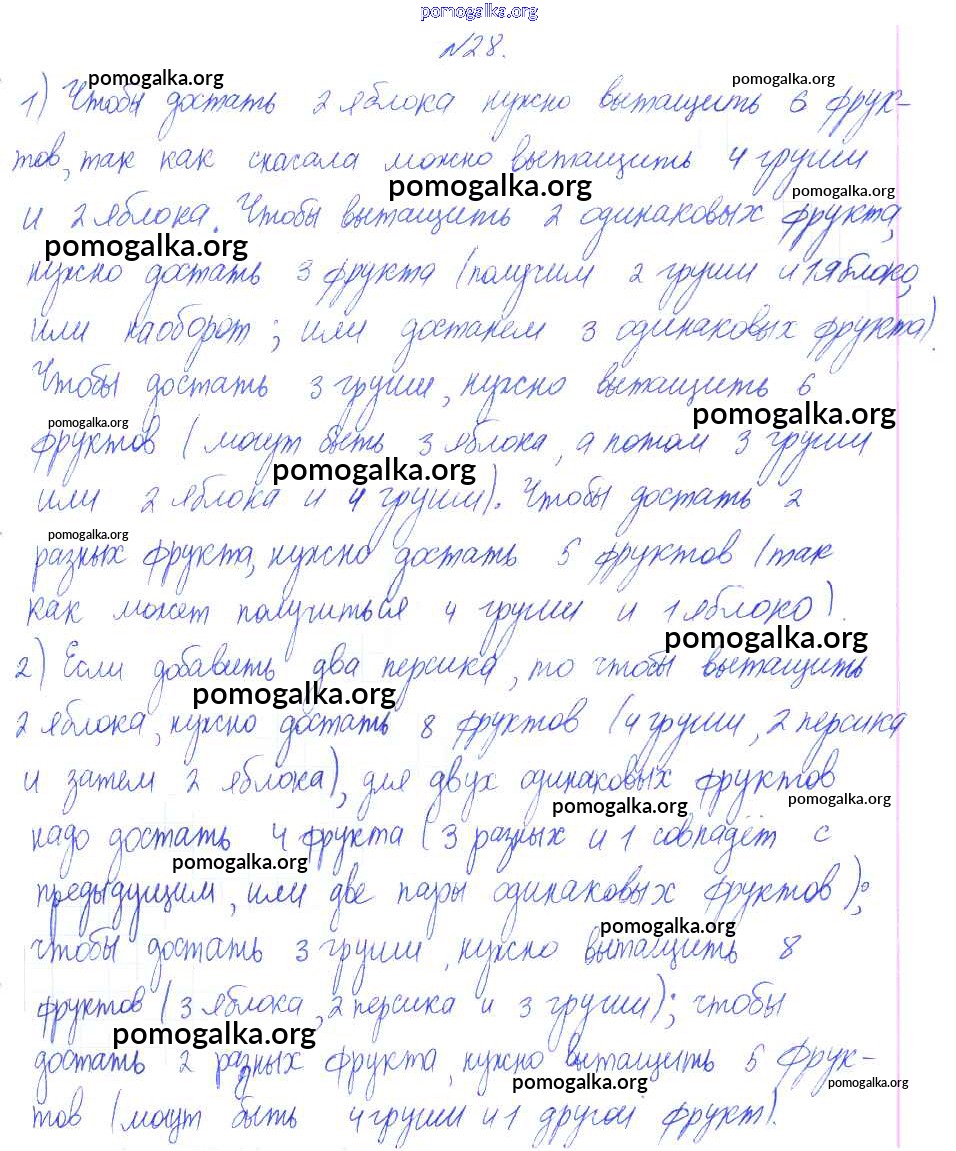 pomogalka.org
№28.
pomogalka.org pomogalka.org
1) Чтобы достать 2 яблока нужно вытащить 6 фрук-
тов, так как сначала можно вытащить 4 груши
pomogalka.org pomogalka.org
и 2 яблока. Чтобы вытащить 2 одинаковых фрукта,
pomogalka.org
нужно достать 3 фрукта (получим 2 груши и 1 яблоко,
или наоборот; или достанем 3 одинаковых фрукта).
Чтобы достать 3 груши, нужно вытащить 6
pomogalka.org pomogalka.org
фруктов (могут быть 3 яблока, а потом 3 груши
pomogalka.org
или 2 яблока и 4 груши). Чтобы достать 2
pomogalka.org
разных фрукта, нужно достать 5 фруктов (так
как может получиться 4 груши и 1 яблоко).
pomogalka.org
2) Если добавить два персика, то чтобы вытащить
pomogalka.org
2 яблока, нужно достать 8 фруктов (4 груши, 2 персика
и затем 2 яблока), для двух одинаковых фруктов
pomogalka.org pomogalka.org
надо достать 4 фрукта (3 разных и 1 совпадёт с
pomogalka.org
предыдущим, или две пары одинаковых фруктов);
pomogalka.org
чтобы достать 3 груши, нужно вытащить 8
фруктов (3 яблока, 2 персика и 3 груши); чтобы
pomogalka.org
достать 2 разных фрукта, нужно вытащить 5 фрук-
pomogalka.org pomogalka.org
тов (могут быть 4 груши и 1 другой фрукт).